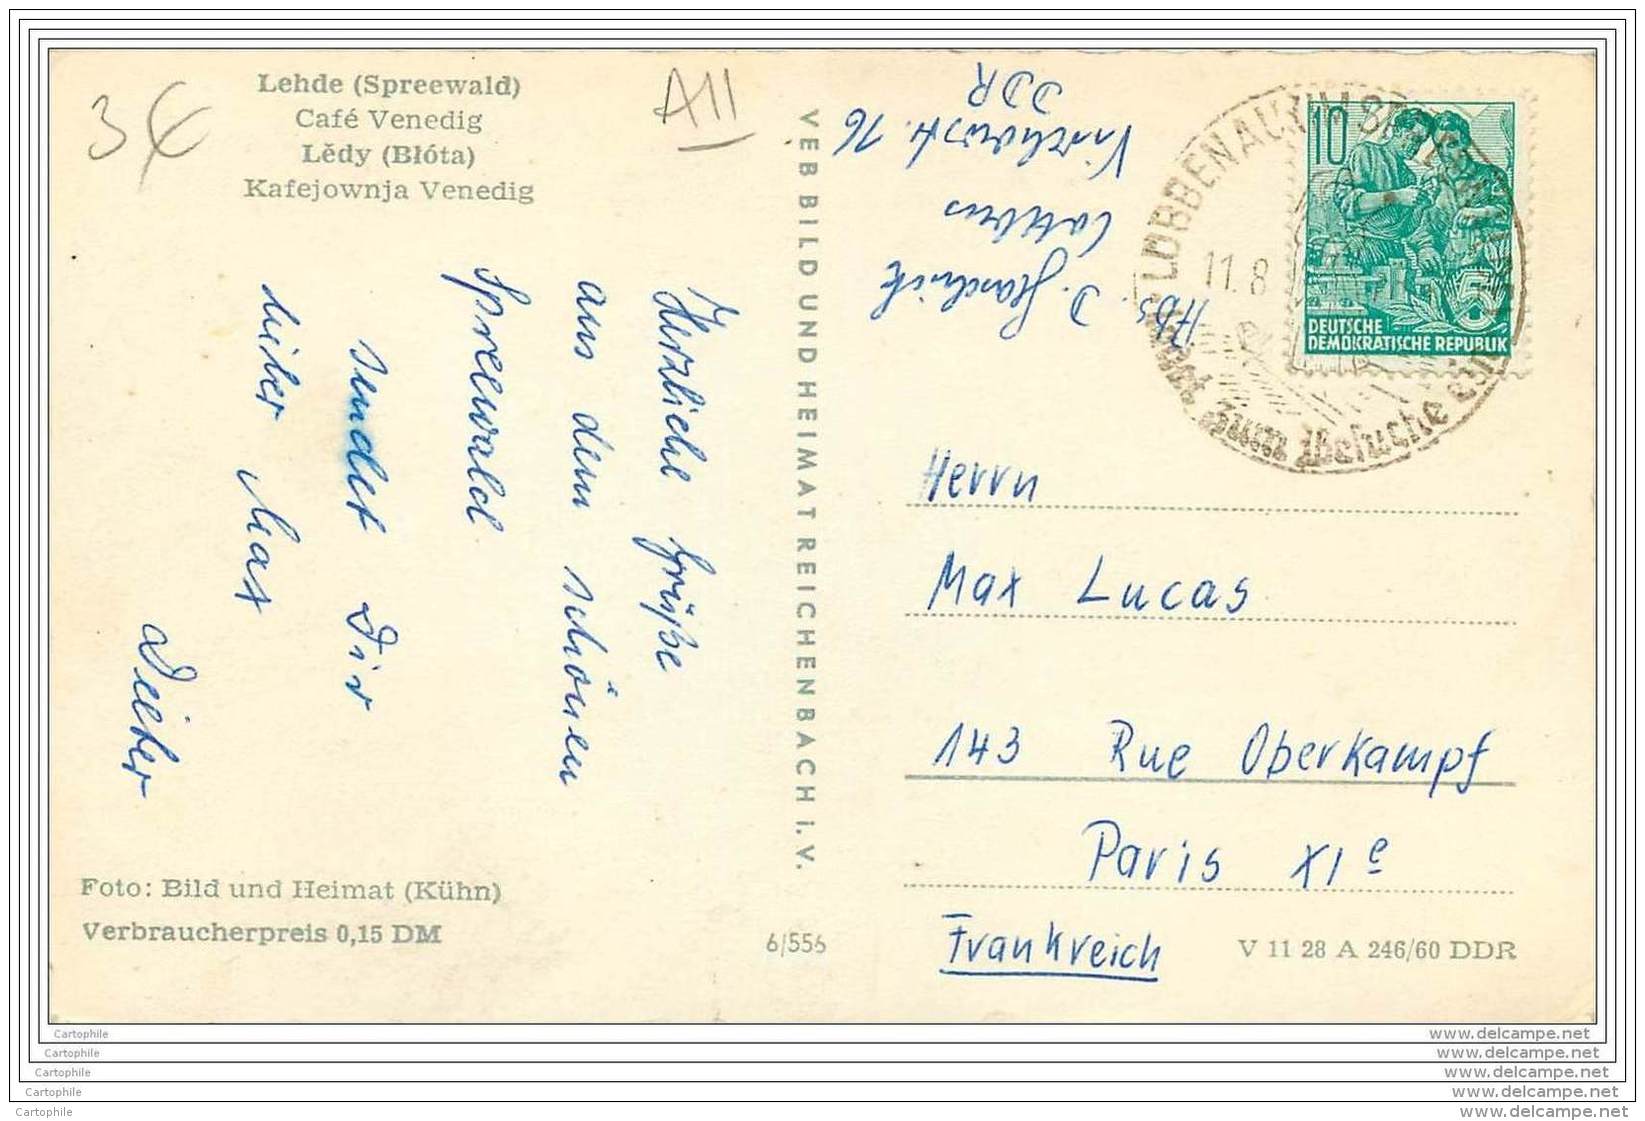 Lehde (Spreewald)
Café Venedig
Lědy (Błóta)
Kafejownja Venedig
3 €
A11
Herzliche Grüße
aus dem schönen
Spreewald
sendet Dir
lieber Max
Dieter
Foto: Bild und Heimat (Kühn)
Verbraucherpreis 0,15 DM
VEB BILD UND HEIMAT REICHENBACH i. V.
6/556
Abs. D.
Cottbus
16
DDR
LÜBBENAU
11.8
ladet zum Besuche ein
10
5
DEUTSCHE
DEMOKRATISCHE REPUBLIK
Herrn
Max Lucas
143 Rue Oberkampf
Paris XIe
Frankreich
V 11 28 A 246/60 DDR
Cartophile
Cartophile
Cartophile
Cartophile
Cartophile
www.delcampe.net
www.delcampe.net
www.delcampe.net
www.delcampe.net
www.delcampe.net